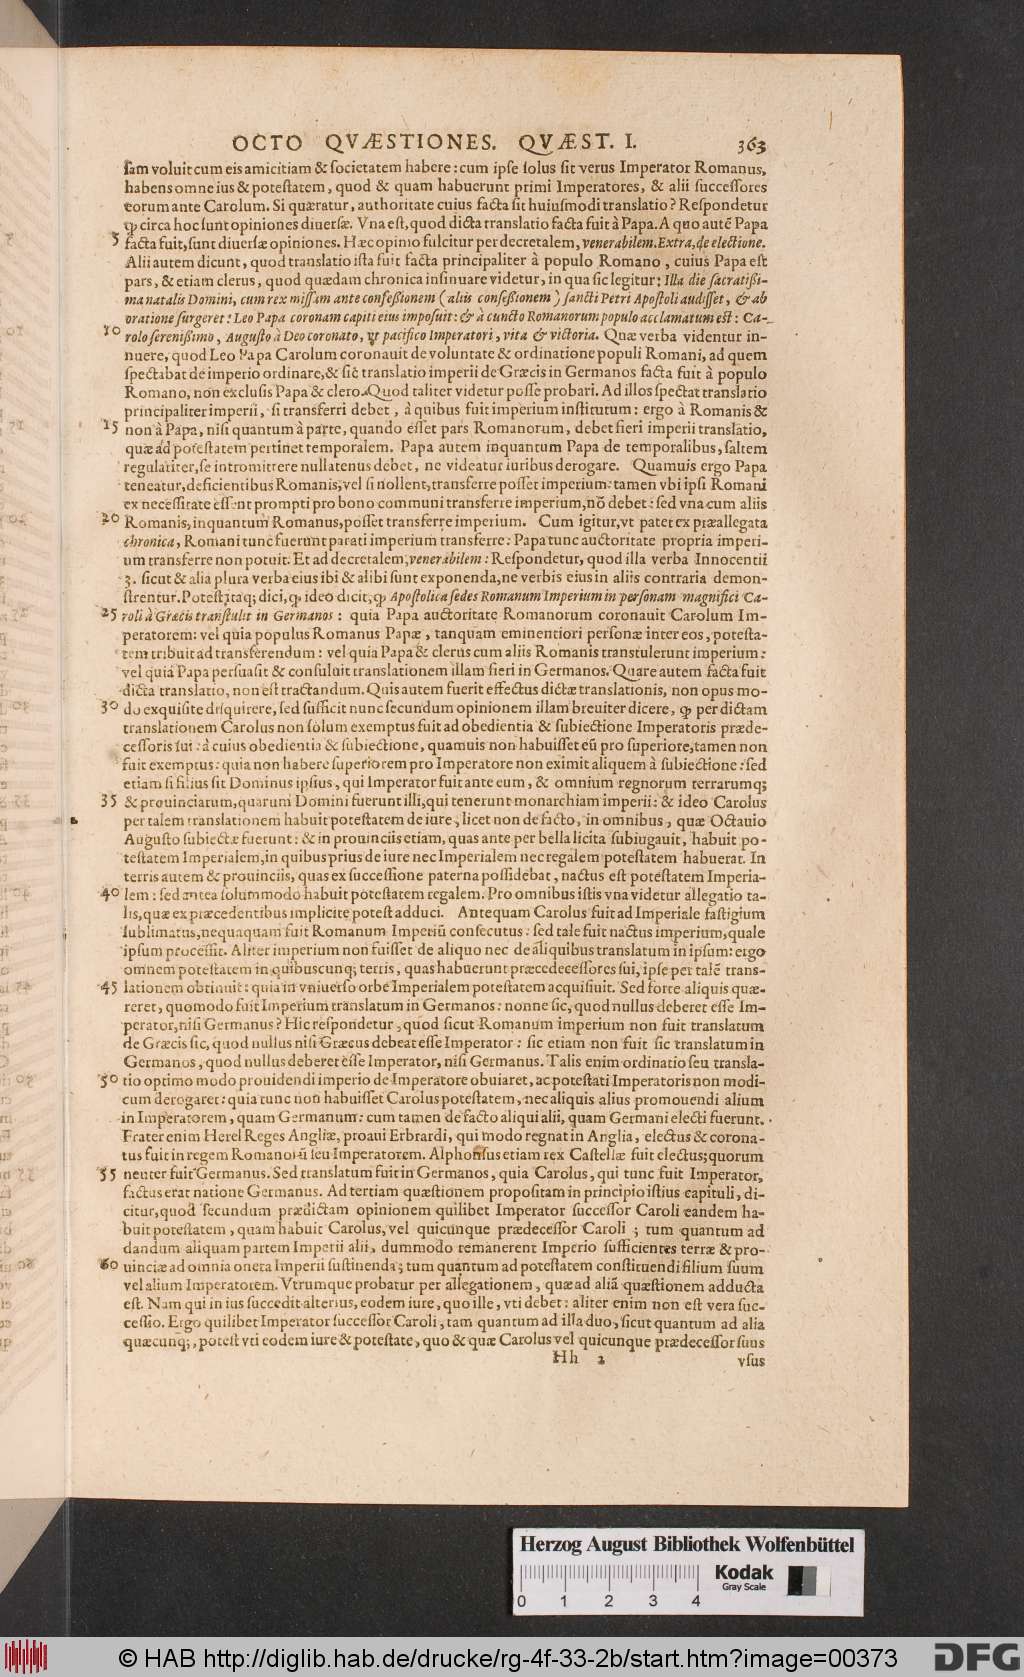 OCTO QVÆSTIONES. QVÆST. I. 363
sam voluit cum eis amicitiam & societatem habere: cum ipse solus sit verus Imperator Romanus,
habens omne ius & potestatem, quod & quam habuerunt primi Imperatores, & alii successores
eorum ante Carolum. Si quæratur, authoritate cuius facta sit huiusmodi translatio? Respondetur
ꝙ circa hoc sunt opiniones diuersæ. Vna est, quod dicta translatio facta fuit à Papa. A quo autẽ Papa
5 facta fuit, sunt diuersæ opiniones. Hæc opinio fulcitur per decretalem, venerabilem. Extra, de electione.
Alii autem dicunt, quod translatio ista fuit facta principaliter à populo Romano, cuius Papa est
pars, & etiam clerus, quod quædam chronica insinuare videtur, in qua sic legitur: Illa die sacratißi-
ma natalis Domini, cum rex missam ante confeßionem (aliis conseßionem) sancti Petri Apostoli audisset, & ab
oratione surgeret: Leo Papa coronam capiti eius imposuit: & à cuncto Romanorum populo acclamatum est: Ca-
10 rolo serenißimo, Augusto à Deo coronato, vt pacifico Imperatori, vita & victoria. Quæ verba videntur in-
nuere, quod Leo Papa Carolum coronauit de voluntate & ordinatione populi Romani, ad quem
spectabat de imperio ordinare, & sic translatio imperii de Græcis in Germanos facta fuit à populo
Romano, non exclusis Papa & clero. Quod taliter videtur posse probari. Ad illos spectat translatio
principaliter imperii, si transferri debet, à quibus fuit imperium institutum: ergo à Romanis &
15 non à Papa, nisi quantum à parte, quando esset pars Romanorum, debet fieri imperii translatio,
quæ ad potestatem pertinet temporalem. Papa autem inquantum Papa de temporalibus, saltem
regulariter, se intromittere nullatenus debet, ne videatur iuribus derogare. Quamuis ergo Papa
teneatur, deficientibus Romanis, vel si nollent, transferre posset imperium: tamen vbi ipsi Romani
ex necessitate essent prompti pro bono communi transferre imperium, nõ debet: sed vna cum aliis
20 Romanis, inquantum Romanus, posset transferre imperium. Cum igitur, vt patet ex præallegata
chronica, Romani tunc fuerunt parati imperium transferre: Papa tunc auctoritate propria imperi-
um transferre non potuit. Et ad decretalem, venerabilem: Respondetur, quod illa verba Innocentii
3. sicut & alia plura verba eius ibi & alibi sunt exponenda, ne verbis eius in aliis contraria demon-
strentur. Potest itaq; dici, ꝙ ideo dicit, ꝙ Apostolica sedes Romanum Imperium in personam magnifici Ca-
25 roli à Græcis transtulit in Germanos: quia Papa auctoritate Romanorum coronauit Carolum Im-
peratorem: vel quia populus Romanus Papæ, tanquam eminentiori personæ inter eos, potesta-
tem tribuit ad transferendum: vel quia Papa & clerus cum aliis Romanis transtulerunt imperium:
vel quia Papa persuasit & consuluit translationem illam fieri in Germanos. Quare autem facta fuit
dicta translatio, non est tractandum. Quis autem fuerit effectus dictæ translationis, non opus mo-
30 do exquisite disquirere, sed sufficit nunc secundum opinionem illam breuiter dicere, ꝙ per dictam
translationem Carolus non solum exemptus fuit ad obedientia & subiectione Imperatoris præde-
cessoris sui: à cuius obedientia & subiectione, quamuis non habuisset eũ pro superiore, tamen non
fuit exemptus: quia non habere superiorem pro Imperatore non eximit aliquem à subiectione: sed
etiam si filius sit Dominus ipsius, qui Imperator fuit ante eum, & omnium regnorum terrarumq;
35 & prouinciarum, quarum Domini fuerunt illi, qui tenerunt monarchiam imperii: & ideo Carolus
per talem translationem habuit potestatem de iure, licet non de facto, in omnibus, quæ Octauio
Augusto subiectæ fuerunt: & in prouinciis etiam, quas ante per bella licita subiugauit, habuit po-
testatem Imperialem, in quibus prius de iure nec Imperialem nec regalem potestatem habuerat. In
terris autem & prouinciis, quas ex successione paterna possidebat, nactus est potestatem Imperia-
40 lem: sed antea solummodo habuit potestatem regalem. Pro omnibus istis vna videtur allegatio ta-
lis, quæ ex præcedentibus implicite potest adduci. Antequam Carolus fuit ad Imperiale fastigium
sublimatus, nequaquam fuit Romanum Imperiũ consecutus: sed tale fuit nactus imperium, quale
ipsum processit. Aliter imperium non fuisset de aliquo nec de aliquibus translatum in ipsum: ergo
omnem potestatem in quibuscunq; terris, quas habuerunt præcedecessores sui, ipse per talẽ trans-
45 lationem obtinuit: quia in vniuerso orbe Imperialem potestatem acquisiuit. Sed forte aliquis quæ-
reret, quomodo fuit Imperium translatum in Germanos: nonne sic, quod nullus deberet esse Im-
perator, nisi Germanus? Hic respondetur, quod sicut Romanum imperium non fuit translatum
de Græcis sic, quod nullus nisi Græcus debeat esse Imperator: sic etiam non fuit sic translatum in
Germanos, quod nullus deberet esse Imperator, nisi Germanus. Talis enim ordinatio seu transla-
50 tio optimo modo prouidendi imperio de Imperatore obuiaret, ac potestati Imperatoris non modi-
cum derogaret: quia tunc non habuisset Carolus potestatem, nec aliquis alius promouendi alium
in Imperatorem, quam Germanum: cum tamen de facto aliqui alii, quam Germani electi fuerunt.
Frater enim Herel Reges Angliæ, proaui Erbrardi, qui modo regnat in Anglia, electus & corona-
tus fuit in regem Romanorũ seu Imperatorem. Alphonsus etiam rex Castellæ fuit electus; quorum
55 neuter fuit Germanus. Sed translatum fuit in Germanos, quia Carolus, qui tunc fuit Imperator,
factus erat natione Germanus. Ad tertiam quæstionem propositam in principio istius capituli, di-
citur, quod secundum prædictam opinionem quilibet Imperator successor Caroli eandem ha-
buit potestatem, quam habuit Carolus, vel quicunque prædecessor Caroli; tum quantum ad
dandum aliquam partem Imperii alii, dummodo remanerent Imperio sufficientes terræ & pro-
60 uinciæ ad omnia onera Imperii sustinenda; tum quantum ad potestatem constituendi filium suum
vel alium Imperatorem. Vtrumque probatur per allegationem, quæ ad aliã quæstionem adducta
est. Nam qui in ius succedit alterius, eodem iure, quo ille, vti debet: aliter enim non est vera suc-
cessio. Ergo quilibet Imperator successor Caroli, tam quantum ad illa duo, sicut quantum ad alia
quæcunq;, potest vti eodem iure & potestate, quo & quæ Carolus vel quicunque prædecessor suus
Hh 2 vsus
Herzog August Bibliothek Wolfenbüttel
Kodak
Gray Scale
0 1 2 3 4
© HAB http://diglib.hab.de/drucke/rg-4f-33-2b/start.htm?image=00373
DFG